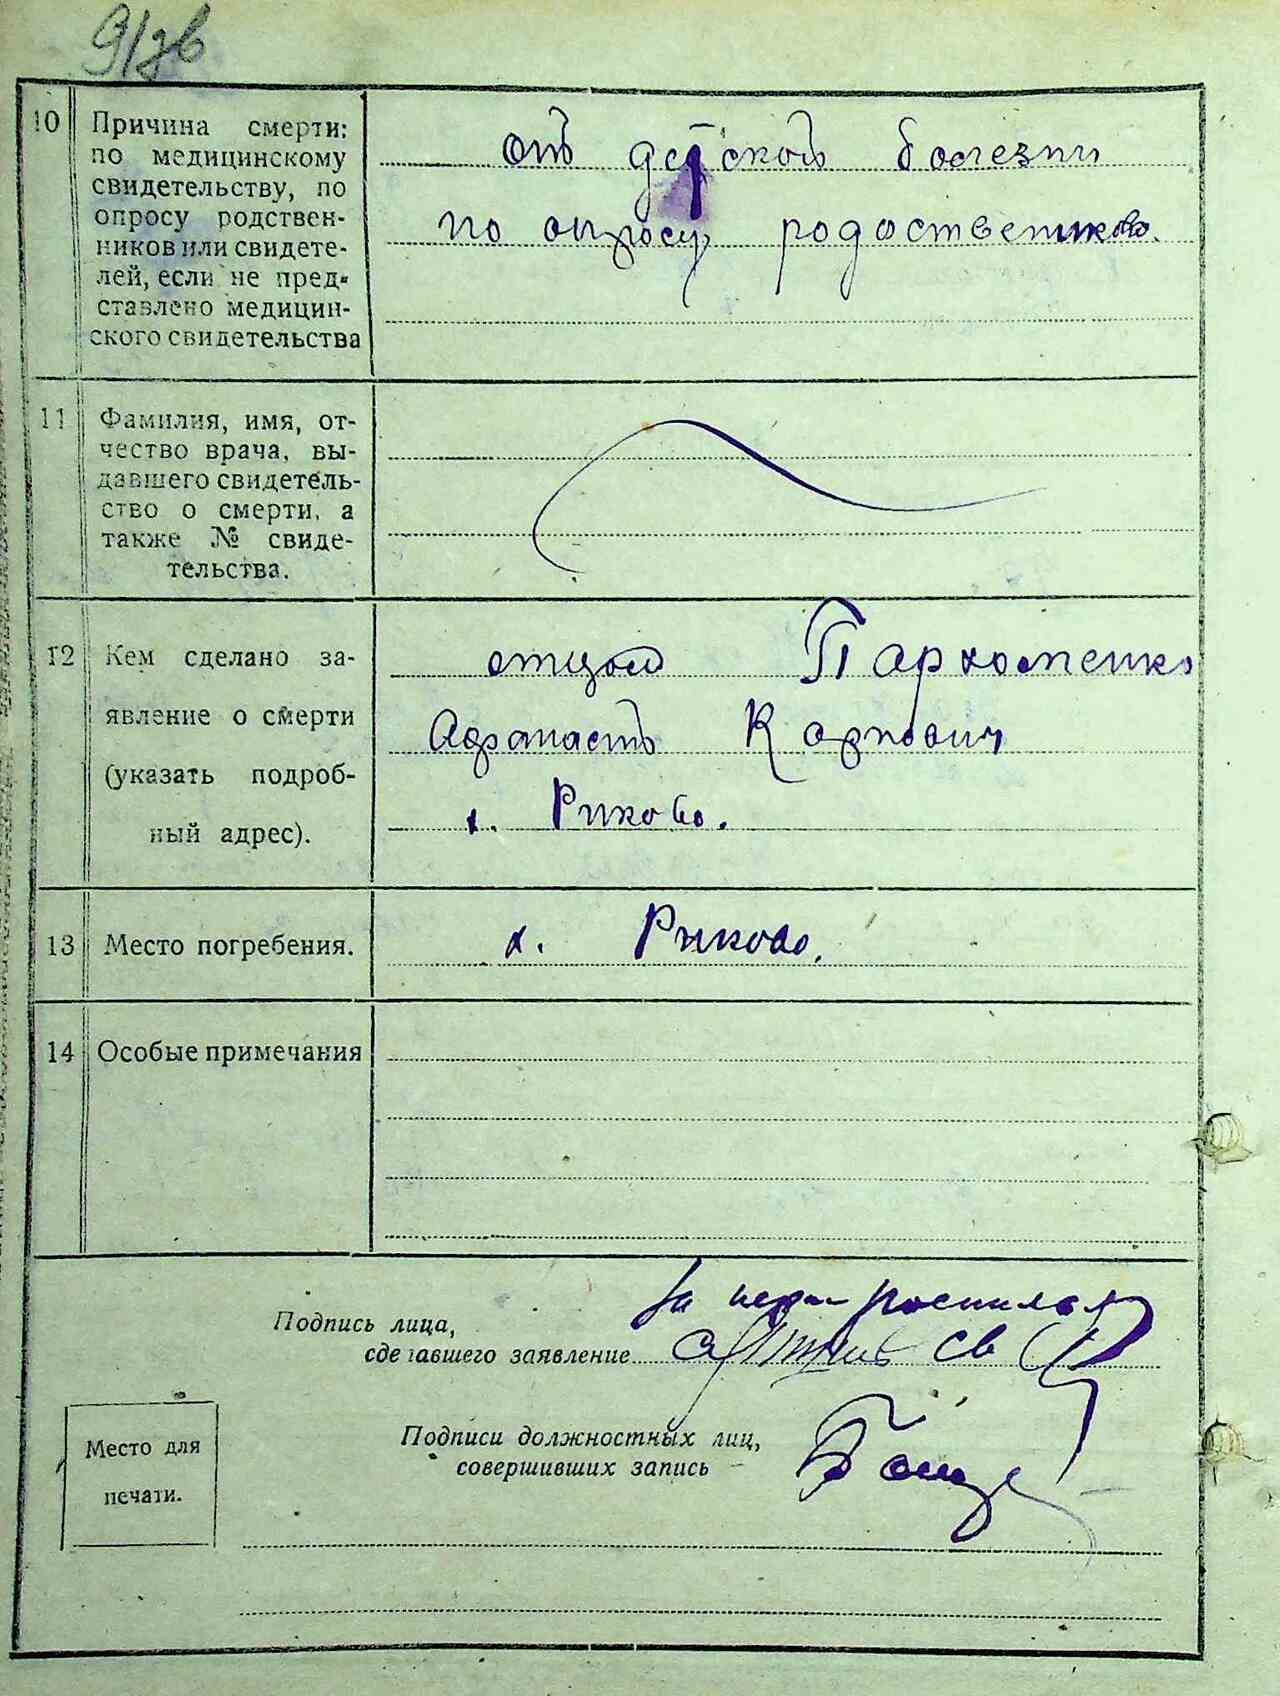 9/зв
10 Причина смерти:
по медицинскому
свидетельству, по
опросу родствен-
ников или свидете-
лей, если не пред-
ставлено медицин-
ского свидетельства
отъ детской болезни
по опросу родоствеников.
11 Фамилия, имя, от-
чество врача, вы-
давшего свидетель-
ство о смерти, а
также № свиде-
тельства.
12 Кем сделано за-
явление о смерти
(указать подроб-
ный адрес).
отцом Пархоменко
Афанасть Карпович
х. Риково.
13 Место погребения.
х. Риково.
14 Особые примечания
За негра росписался
Подпись лица,
сделавшего заявление
Подписи должностных лиц,
совершивших запись
Место для
печати.